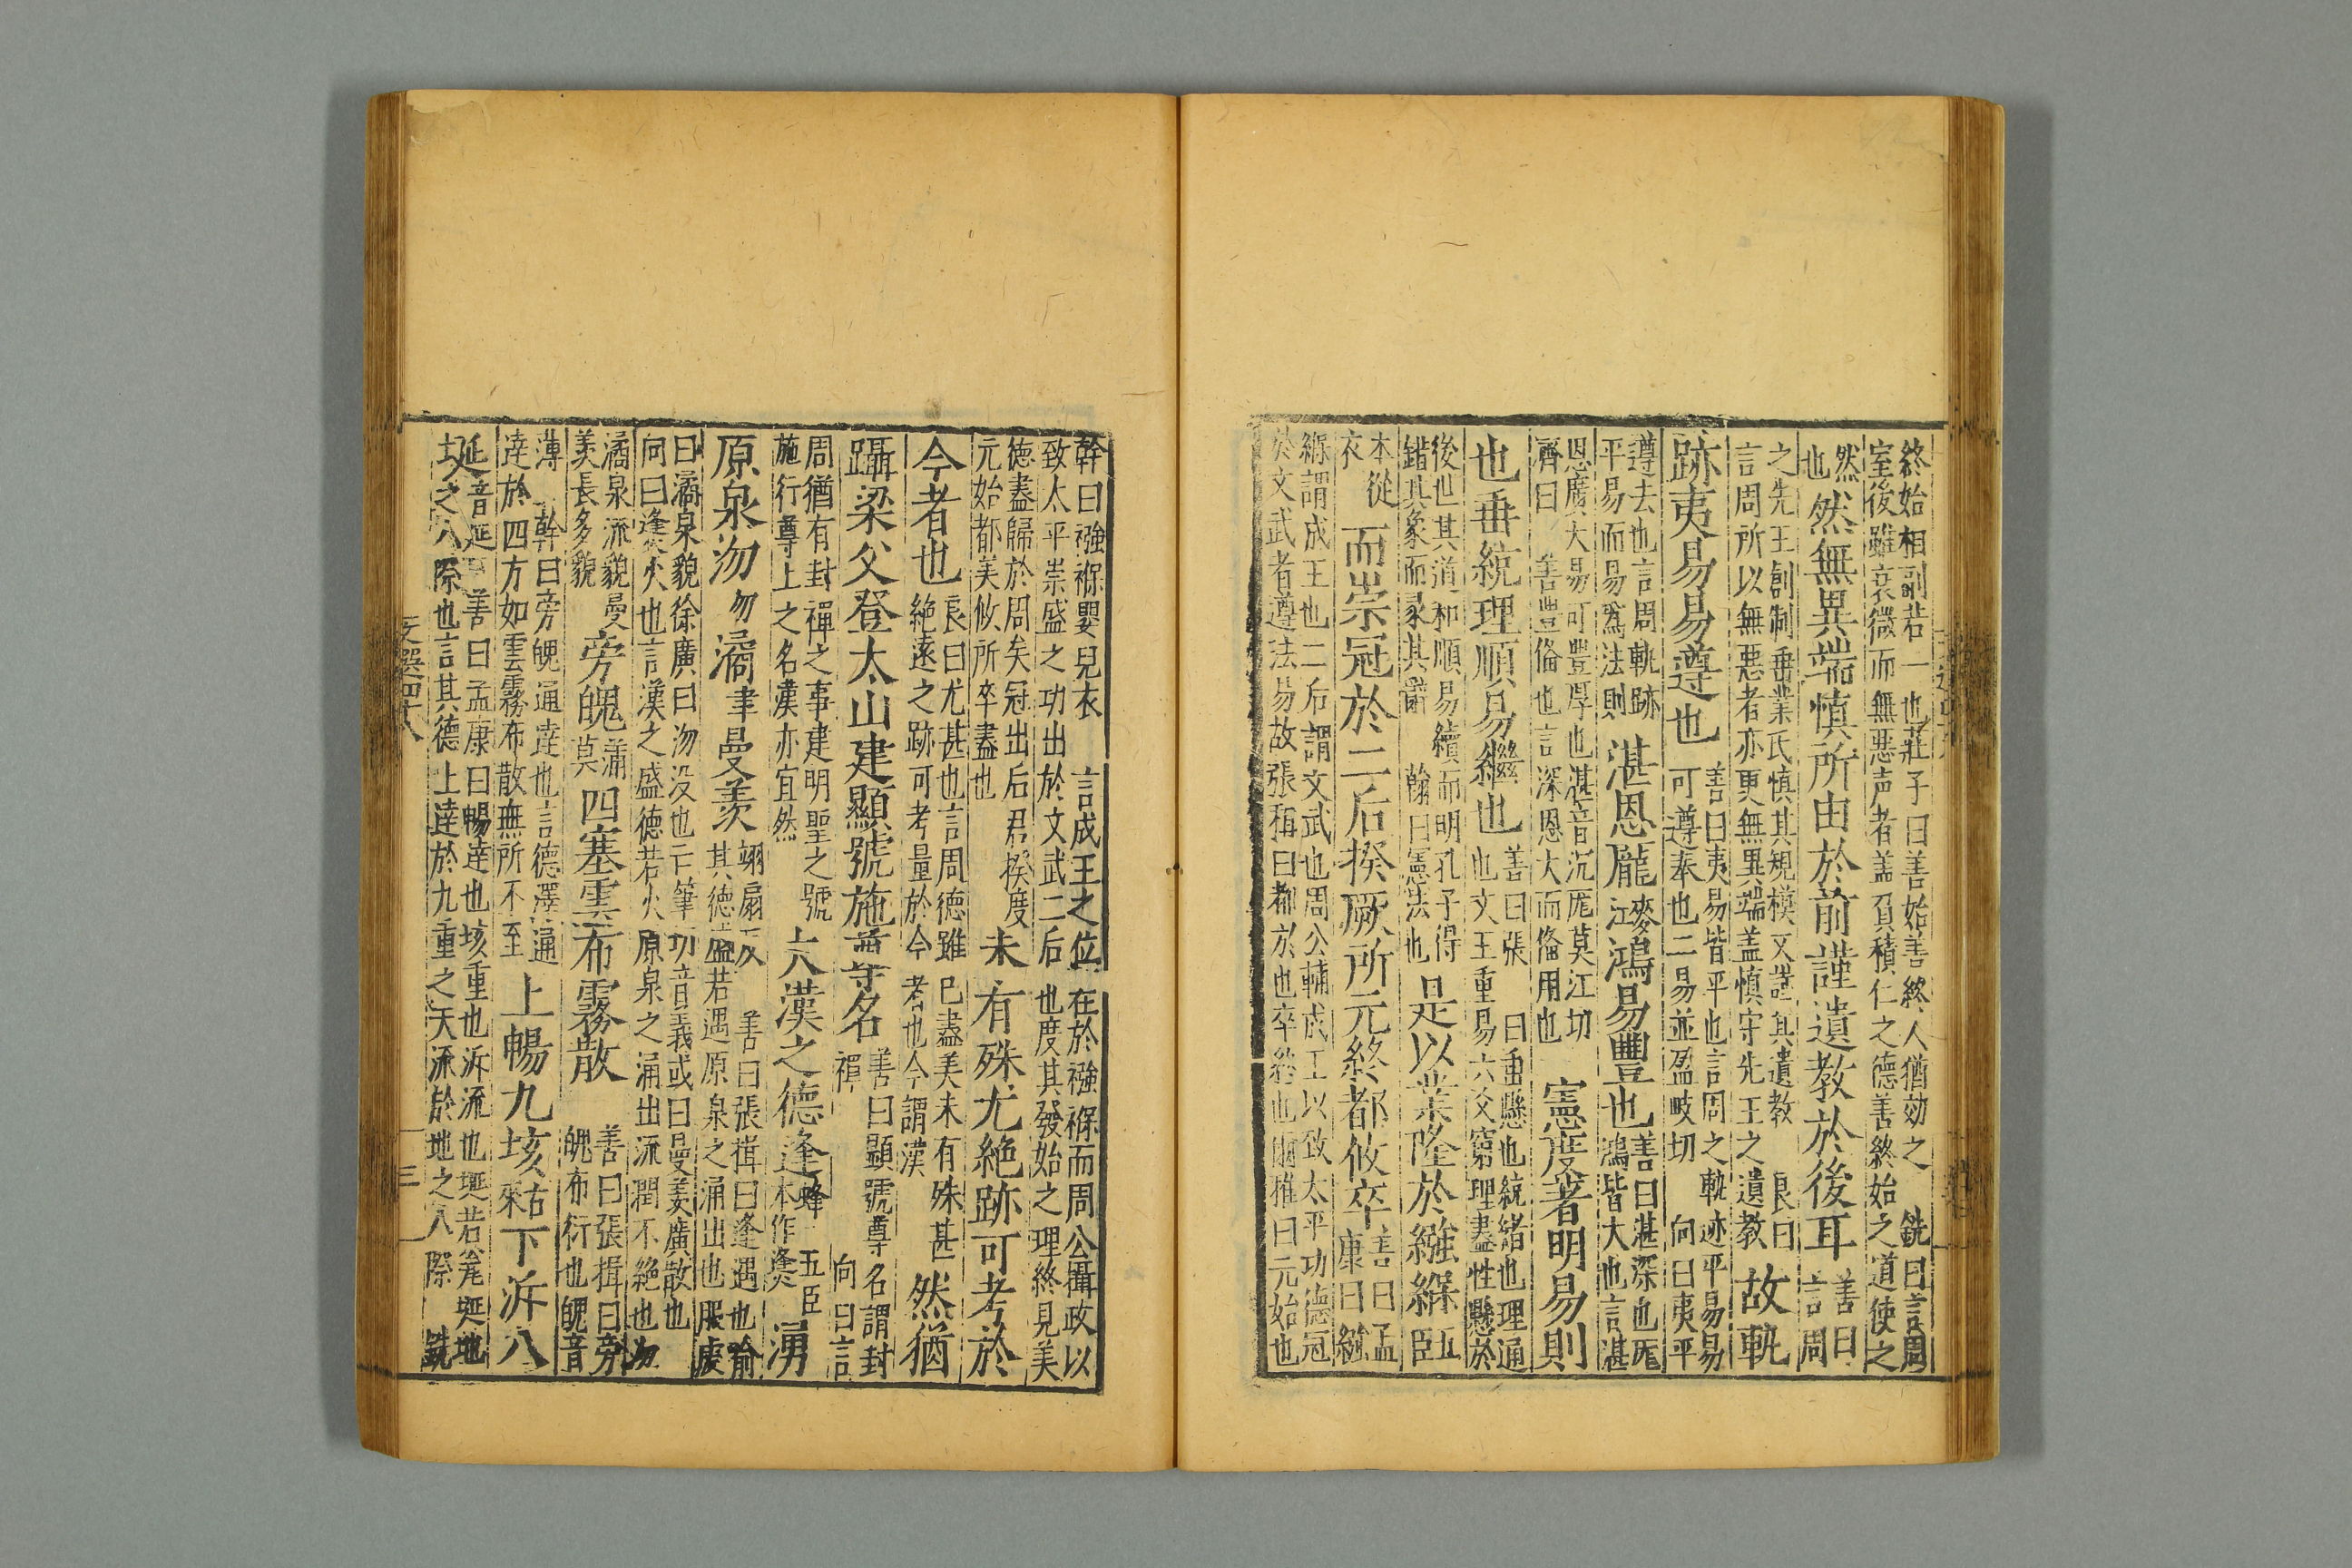 終始相副若一也莊子曰善始善終人猶効之 銑曰言周
室後雖衰微而無惡声者盖頁積仁之德善終始之道使之
然也 然無異端慎所由於前謹遺教於後耳 善曰言周
之先王創制垂業氏慎其規模又謹其遺教 良曰
言周所以無惡者亦更無異端盖慎守先王之遺教 故軌
跡夷易易遵也 善曰夷易皆平也言周之軌迹平易易
可遵奉也二易並盈歧切 向曰夷平
遵去也言周軌跡平易而易爲法則 湛恩厖麥江鴻易豐也 善曰湛深也厖鴻皆大也言湛
恩廣大易可豐厚也湛音沉厖莫江切
濟曰 善豐俻也言深恩大而俻用也 憲度著明易則
也垂統理順易繼也 善曰張 曰垂懸也統緒也理通
也文王重易六爻窮理盡性懸於
後世其道和順易續而明孔子得
錯其象而彖其辭 翰曰憲法也 是以業隆於繈緥 五臣
本從衣 而崇冠於二后揆厥所元終都攸卒 善曰孟康曰繈
緥謂成王也二后謂文武也周公輔成王以致太平功德冠
於文武者遵法易故張稱曰都於也卒終也爾雅曰元始也
幹曰襁褓嬰兒衣 言成王之位在於襁褓而周公攝政以
致太平崇盛之功出於文武二后也度其發始之理終見美
德盡歸於周矣冠出后君揆度
元始都美攸所卒盡也 未有殊尤絕跡可考於
今者也 良曰尤甚也言周德雖已盡美未有殊甚
絕遠之跡可考量於今者也今謂漢 然猶
躡梁父登太山建顯號施尊名 善曰顯號尊名謂封
禪 向曰言
周猶有封禪之事建明聖之號
施行尊上之名漢亦宜然 大漢之德逢 蜂 五臣本作㷭 湧
原泉沕勿潏聿曼羨 翊扇反 善曰張揖曰逢遇也喻
其德盛若遇原泉之涌出也服虔
曰潏泉貌徐廣曰沕没也亡筆切音義或曰曼羨廣散也
向曰逢火也言漢之盛德若火原泉之涌出流潤不絕也沕
潏泉流貌曼羨長多貌 旁魄 莫 四塞雲布霧散 善曰張揖曰旁
魄布衍也魄音
薄 幹曰旁魄通逹也言德澤通
逹於四方如雲霧布散無所不至 上暢九垓古來下泝八
埏音延 善曰孟康曰暢逹也垓重也泝流也埏若瓮埏地
埏之八際也言其德上逹於九重之天流於地之八際 銑
文選四十八
三